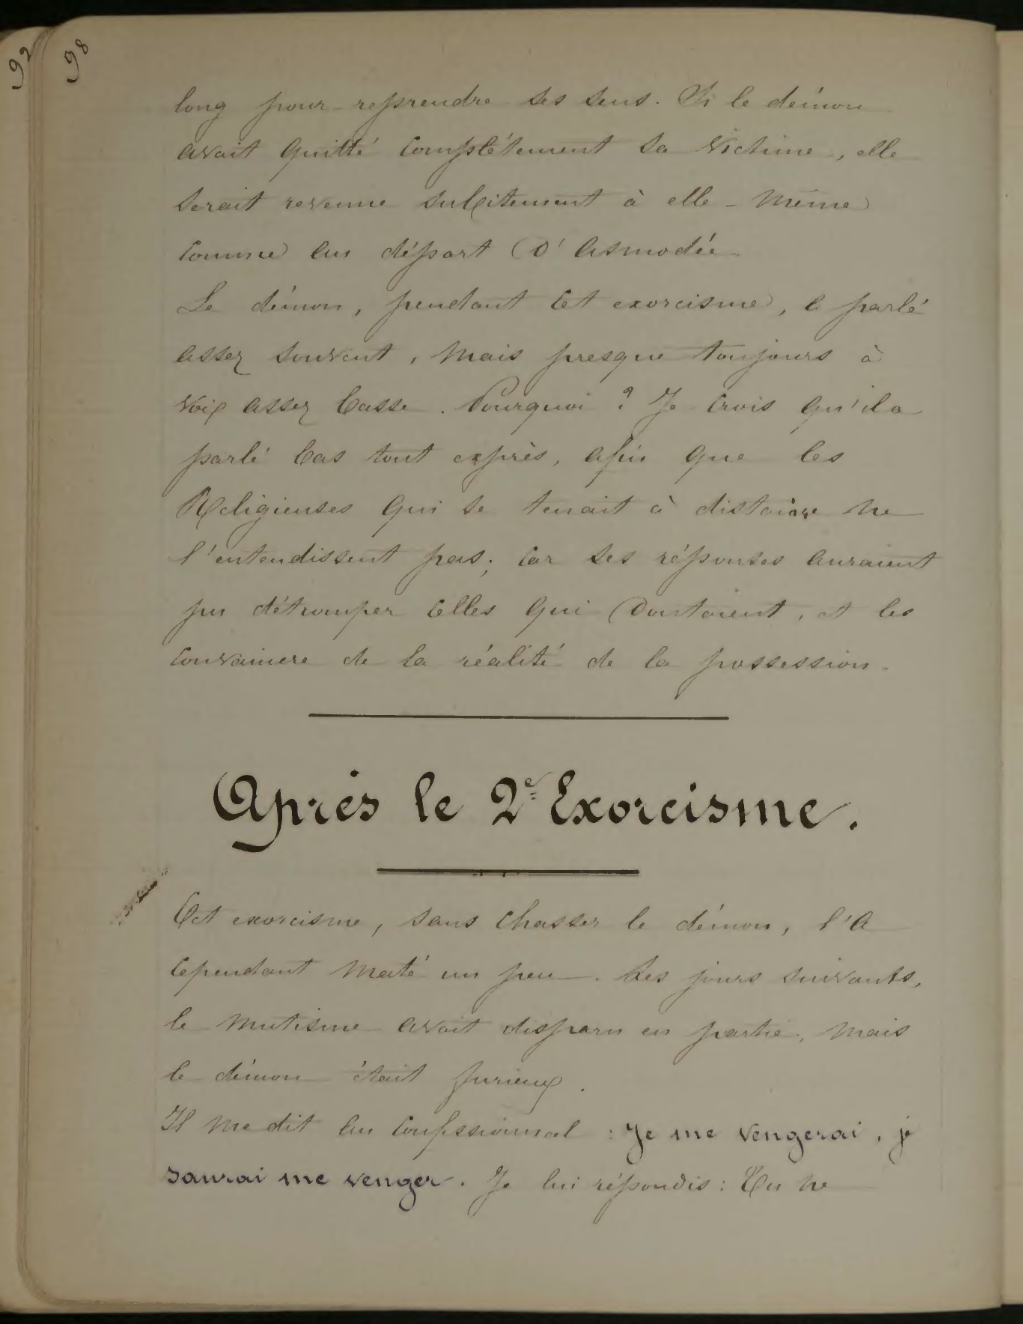 92 98
long pour reprendre ses sens. Si le démon
avait quitté complètement sa victime, elle
serait revenue subitement à elle-même
comme au départ d'Asmodée.
Le démon, pendant cet exorcisme, a parlé
assez souvent, mais presque toujours à
voix assez basse. Pourquoi ? Je crois qu'il a
parlé bas tout exprès, afin que les
Religieuses qui se tenait à distance ne
l'entendissent pas; car ses réponses auraient
pu détromper celles qui doutaient, et les
convaincre de la réalité de la possession.
Après le 2e Exorcisme.
Cet exorcisme, sans chasser le démon, l'a
cependant maté un peu. Les jours suivants,
le mutisme avait disparu en partie, mais
le démon était furieux.
Il me dit au confessionnal : Je me vengerai, je
saurai me venger. Je lui répondis : Tu ne